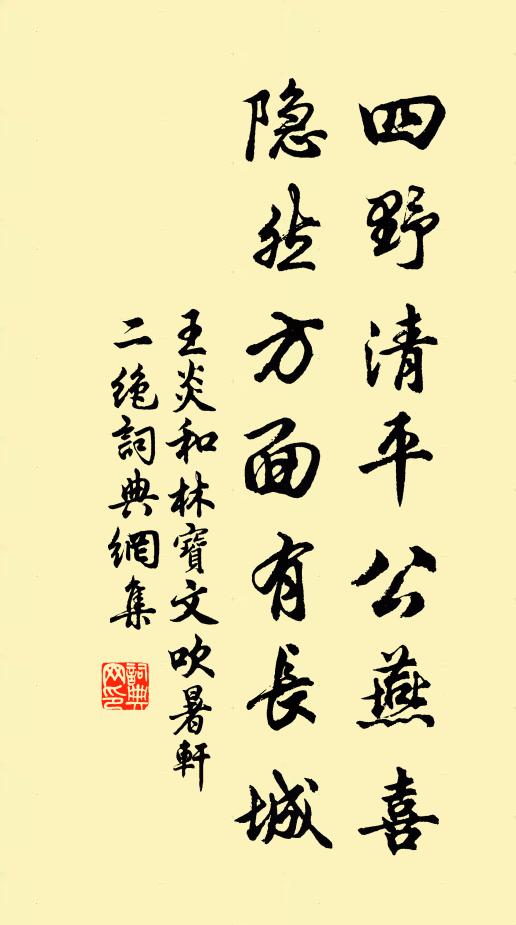 四野清平公燕喜
隐然方面有長城
王炎和林寶文吹暑軒
二絶詞典網集
詞典网印